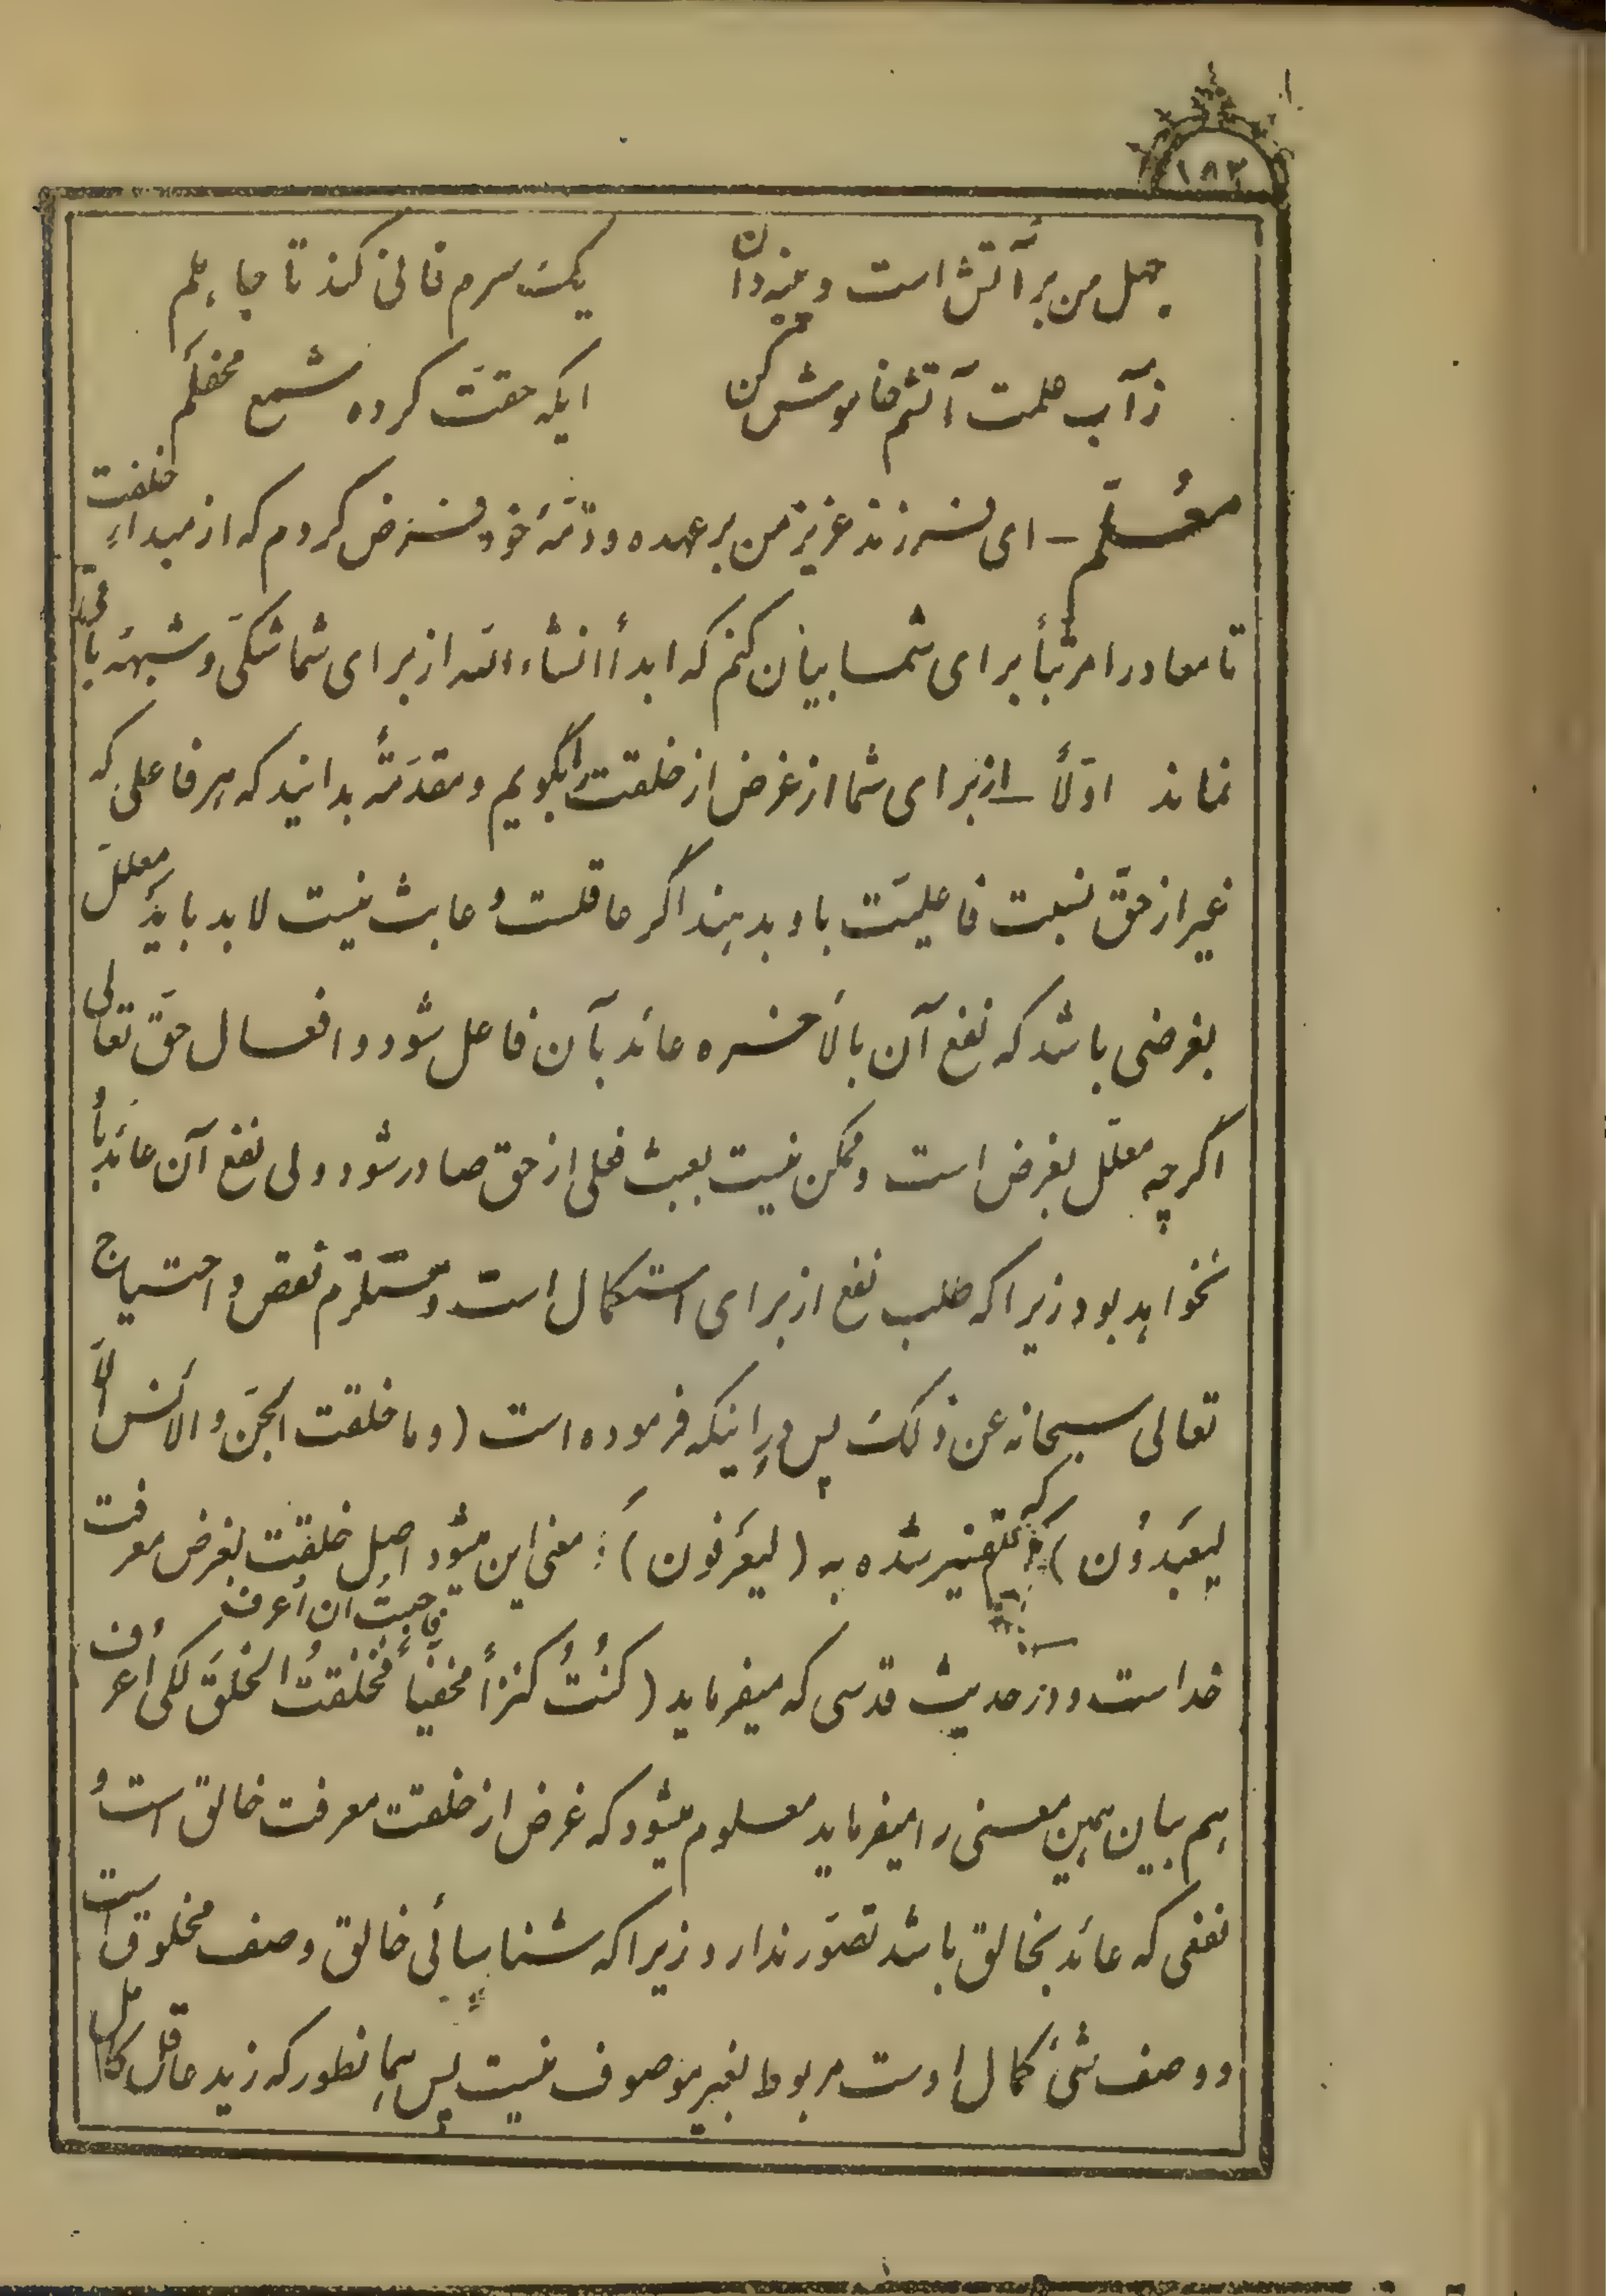 ۱۸۳
جهل من بر آتش است و میزند آن یکسرم فانی کند تا جاهلم
ز آب علمت آتشم خاموش کن ایکه حقت کرده شمع محفلم
معلّم – ای فرزند عزیز من بر عهده و ذمّهٔ خود فرض کردم که از مبداء خلقت
تا معاد را مرتباً برای شما بیان کنم که ابداً انشاءالله از برای شما شکّی و شبههٔ باقی
نماند اوّلاً – از برای شما از غرض از خلقت بگویم و مقدّمتهً بدانید که هر فاعلی که
غیر از حقّ نسبت فاعلیّت باو بدهند اگر عاقلست و عابث نیست لابد باید معلّل
بغرضی باشد که نفع آن بالأخره عائد بآن فاعل شود و افعال حقّ تعالی
اگرچه معلّل بغرض است و ممکن نیست بعبث فعلی از حق صادر شود ولی نفع آن عائد باو
نخواهد بود زیرا که طلب نفع از برای استکمال است و مستلزم نقص و احتیاج
تعالی سبحانه عن ذلک پس در اینکه فرموده است (و ما خلقت الجنّ و الأنس الّا
لیعبدون) که تفسیر شده به (لیعرفون) : معنی این میشود اصل خلقت بغرض معرفت
خداست و در حدیث قدسی که میفرماید (کنتُ کنزاً مخفیّاً فاحببتُ ان اُعرف فخلقتُ الخلقَ لکی اُعرف)
هم بیان همین معنی را میفرماید معلوم میشود که غرض از خلقت معرفت خالق است و
نفعی که عائد بخالق باشد تصوّر ندارد زیرا که شناسائی خالق وصف مخلوق است
و وصف شیء کمال اوست مربوط بغیر موصوف نیست پس همانطور که زید عاقل کامل